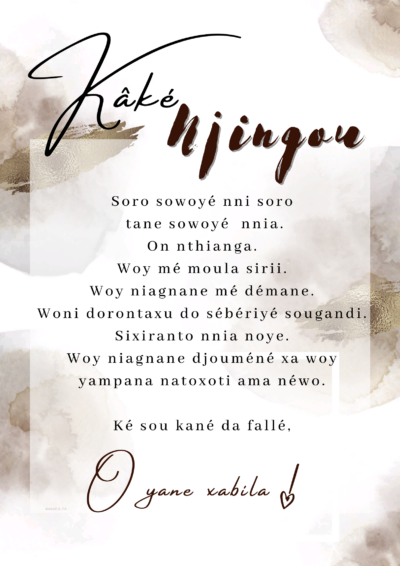 Kâké
Njingou
Soro sowoyé nni soro
tane sowoyé nnia.
On nthianga.
Woy mé moula sirii.
Woy niagnane mé démane.
Woni dorontaxu do sébériyé sougandi.
Sixiranto nnia noye.
Woy niagnane djouméné xa woy
yampana natoxoti ama néwo.
Ké sou kané da fallé,
O yane xabila !